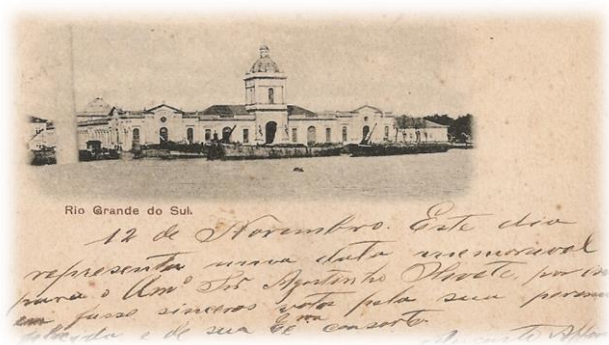 Rio Grande do Sul.
12 de Novembro. Este dia
representa uma data memoravel
para o Amº Snr Agostinho por
faço sinceros votos pela sua
e de sua Exma consorte.